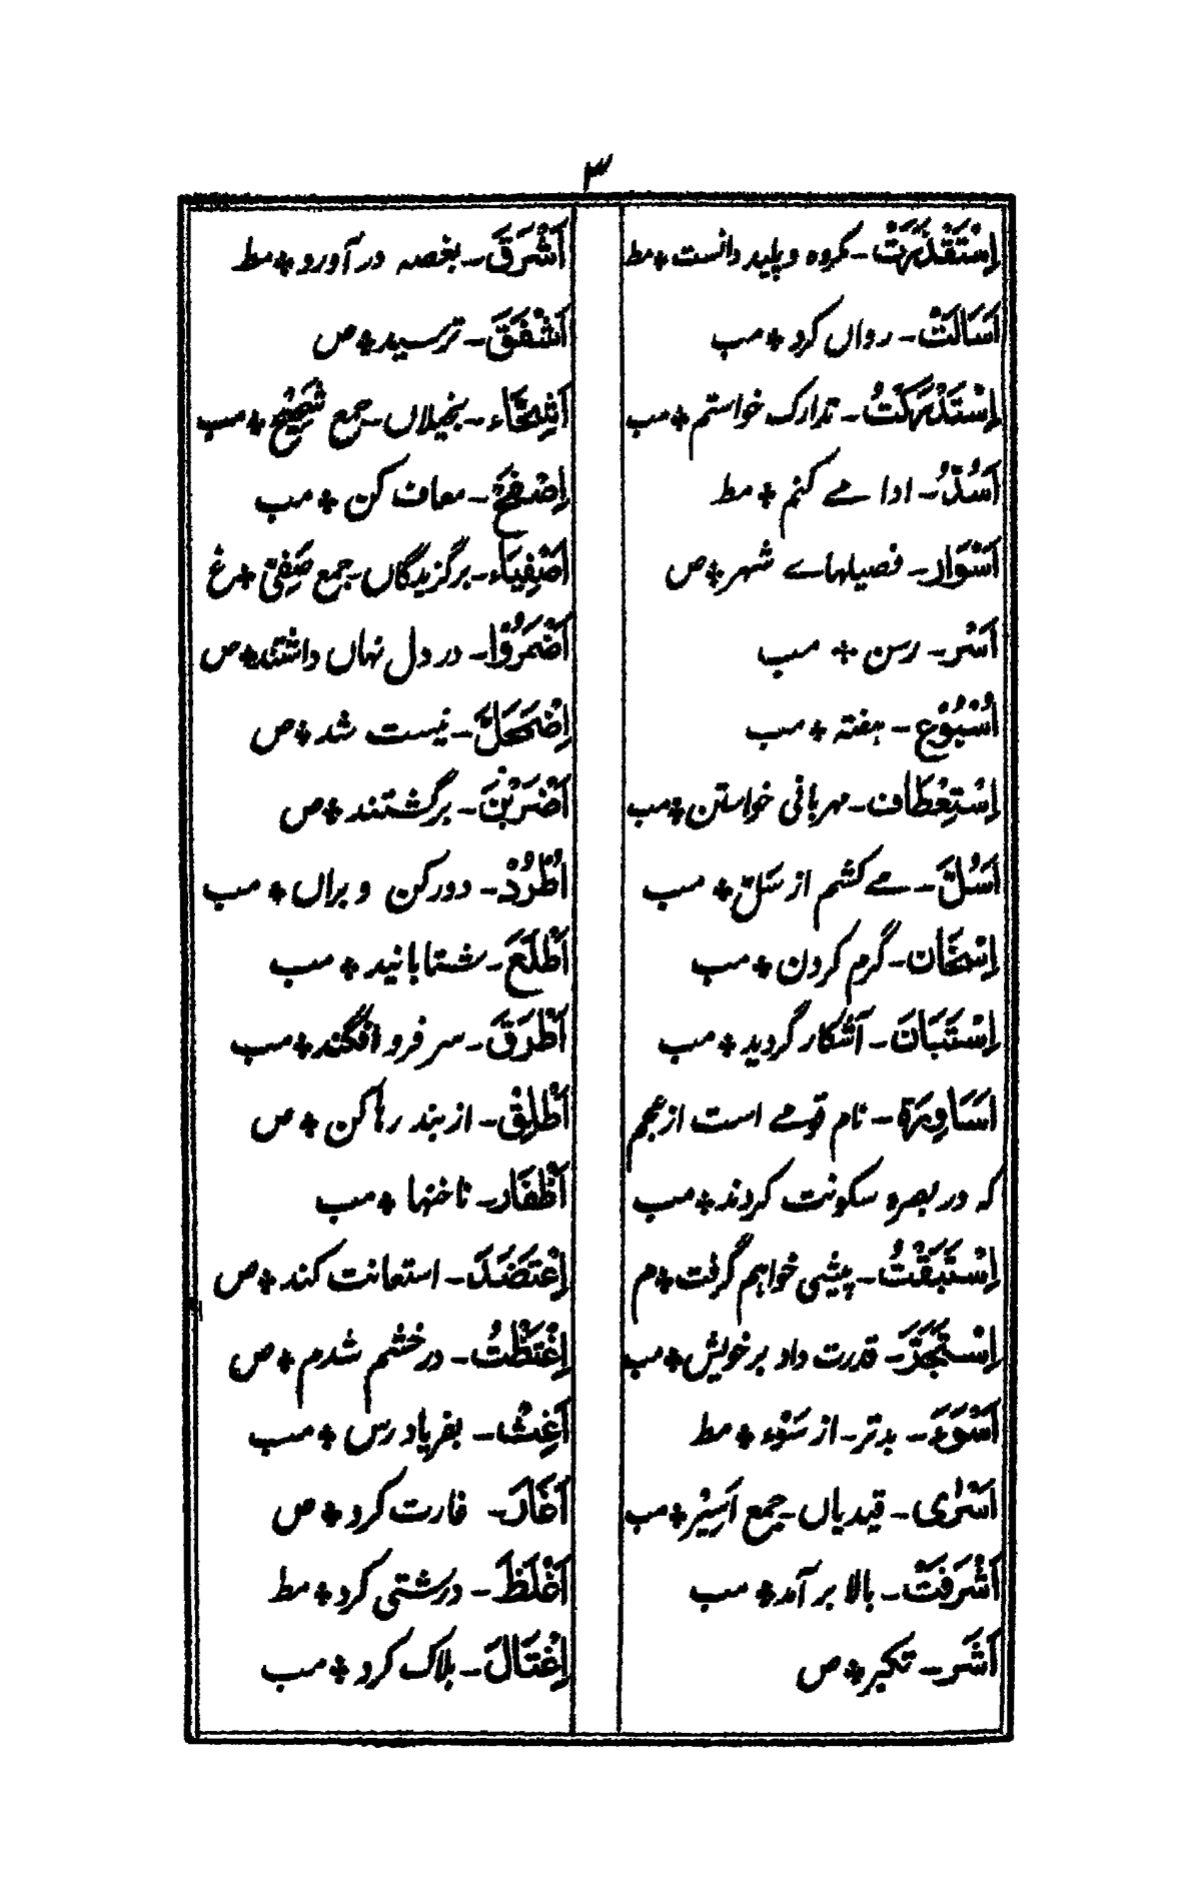 ۳
اِسْتَقْذَرَتْ ـ مکروه و پلید دانست ÷ مط
اَسَالَتْ ـ رواں کرد ÷ مب
اِسْتَدْرَکْتُ ـ تدارک خواستم ÷ مب
اَسُدُّ ـ ادا مے کنم ÷ مط
اَسْوَار ـ فصیلہاے شہر ÷ ص
اَسْر ـ رسن ÷ مب
اُسْبُوْع ـ ہفتہ ÷ مب
اِسْتِعْطَاف ـ مہربانی خواستن ÷ مب
اَسُلّ ـ مے کشم از سَلّ ÷ مب
اِسْخَان ـ گرم کردن ÷ مب
اِسْتَبَانَ ـ آشکار گردید ÷ مب
اَسَاوِرَة ـ نام قومے است از عجم
که در بصره سکونت کردند ÷ مب
اِسْتَبَقْتُ ـ پیشی خواہم گرفت ÷ م
ـ قدرت داد بر خویش ÷ مب
اَسْوَء ـ بدتر ـ از سَوْء ÷ مط
اَسْرٰی ـ قیدیاں ـ جمع اَسِیْر ÷ مب
اَشْرَفَتْ ـ بالا بر آمد ÷ مب
اَشَر ـ تکبر ÷ ص
اَشْرَقَ ـ بغصہ در آورد ÷ مط
اَشْفَقَ ـ ترسید ÷ ص
اَشِحَّاء ـ بخیلاں ـ جمع شَحِیْح ÷ مب
اِصْفَحْ ـ معاف کن ÷ مب
اَصْفِیَاء ـ برگزیدگاں ـ جمع صَفِیّ ÷ غ
اَضْمَرُوْا ـ در دل نہاں داشتند ÷ ص
اِضْمَحَلَّ ـ نیست شد ÷ ص
اَضْرَبْنَ ـ برگشتند ÷ ص
اُطْرُدْ ـ دور کن و براں ÷ مب
اَطْلَعَ ـ شتابانید ÷ مب
اَطْرَقَ ـ سر فرو افگند ÷ مب
اَطْلِقْ ـ از بند رہا کن ÷ ص
اَظْفَار ـ ناخنہا ÷ مب
اِعْتَضَدَ ـ استعانت کند ÷ ص
اِغْتَظْتُ ـ در خشم شدم ÷ ص
اَغِثْ ـ بفریاد رس ÷ مب
اَغَارَ ـ غارت کرد ÷ ص
اَغْلَظَ ـ درشتی کرد ÷ مط
اِغْتَالَ ـ ہلاک کرد ÷ مب